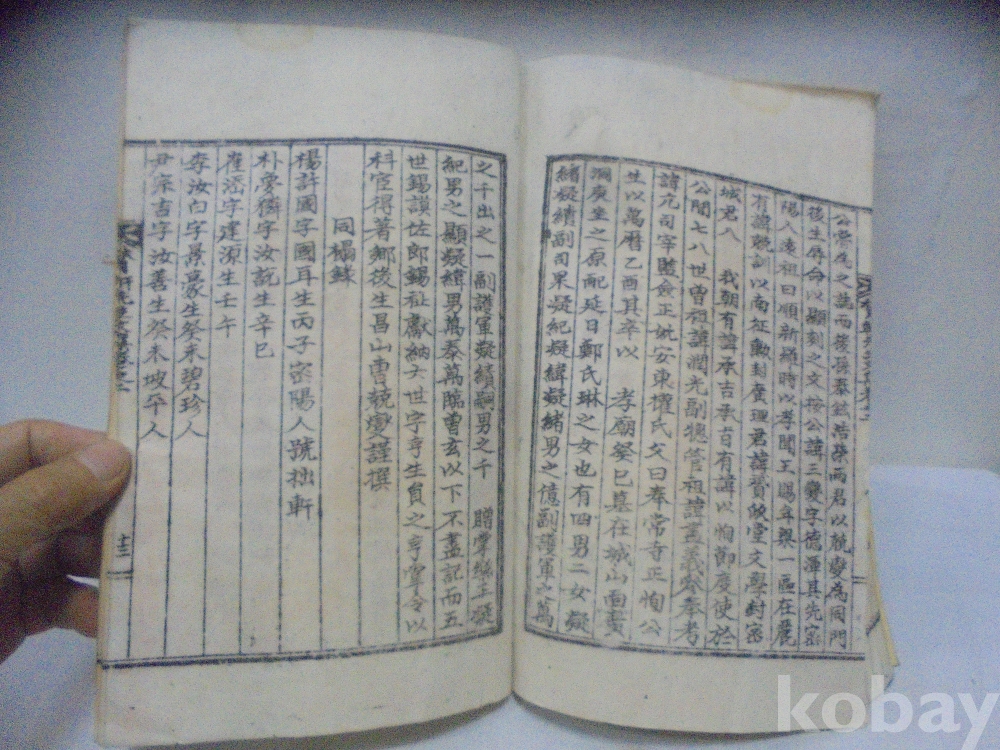 公喬孫之萬而後長泰鉉浩榮兩君以兢燮為同門
後生辱命以顯刻之文按公諱三變字德渾其先密
陽人遠祖曰順新羅時以孝聞王賜年槩一區在麗
有諱兢訓以南征勳封廣理君諱贇皈堂文學封密
城君八 我朝有諱承吉承旨有諱以恂節度使於
公間七八世曾祖諱潤光副摠管祖諱藎義參奉考
諱亢司宰監僉正妣安東權氏父曰奉常寺正恂公
生以萬曆乙酉其卒以 孝廟癸巳墓在城山面
洞庚坐之原配延日鄭氏琳之女也有四男二女凝
緖凝績副司果凝紀凝緯凝緖男之億副護軍之萬
之千出之一副護軍凝績嗣男之千 贈掌樂正凝
紀男之顯凝緯男萬泰萬臨曾玄以下不盡記而五
世錫謨佐郞錫祉獻納六世字亨生員之亨掌令以
科宦得著鄕後生昌山曹兢燮謹撰
同榻錄
楊許國字國耳生丙子密陽人號拙軒
朴愛獜字汝說生辛巳
崔滛字達源生壬午
李汝白字景豪生癸未碧珍人
尹宗吉字汝善生癸未坡平人
十三
kobay